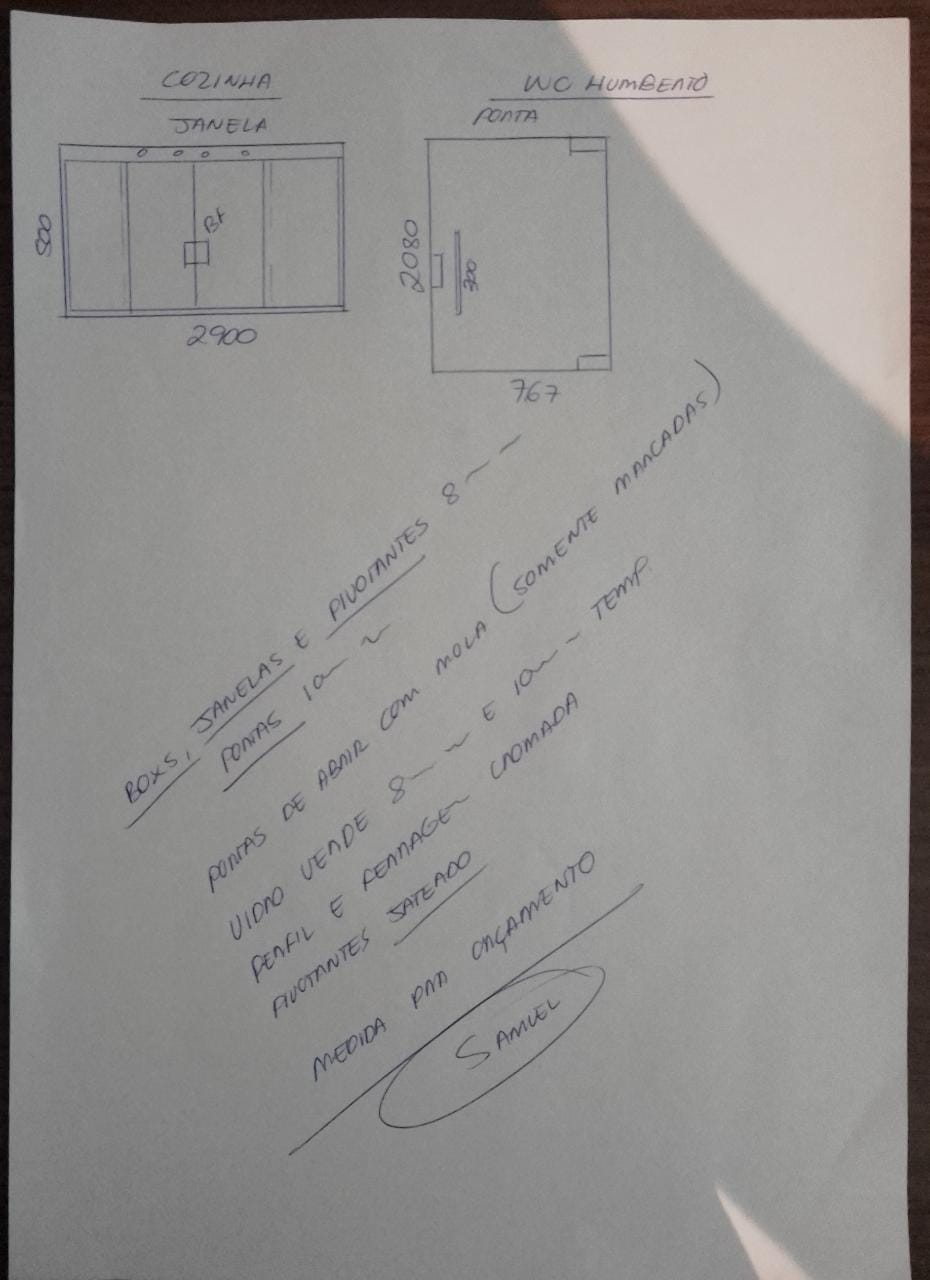 COZINHA
JANELA
BT
800
2900
WC HUMBERTO
PORTA
2080
300
767
BOXS, JANELAS E PIVOTANTES 8mm
PORTAS 10mm
PORTAS DE ABRIR COM MOLA (SOMENTE MARCADAS)
VIDRO VERDE 8mm E 10mm TEMP.
PERFIL E FERRAGEM CROMADA
PIVOTANTES JATEADO
MEDIDA PRA ORÇAMENTO
SAMUEL